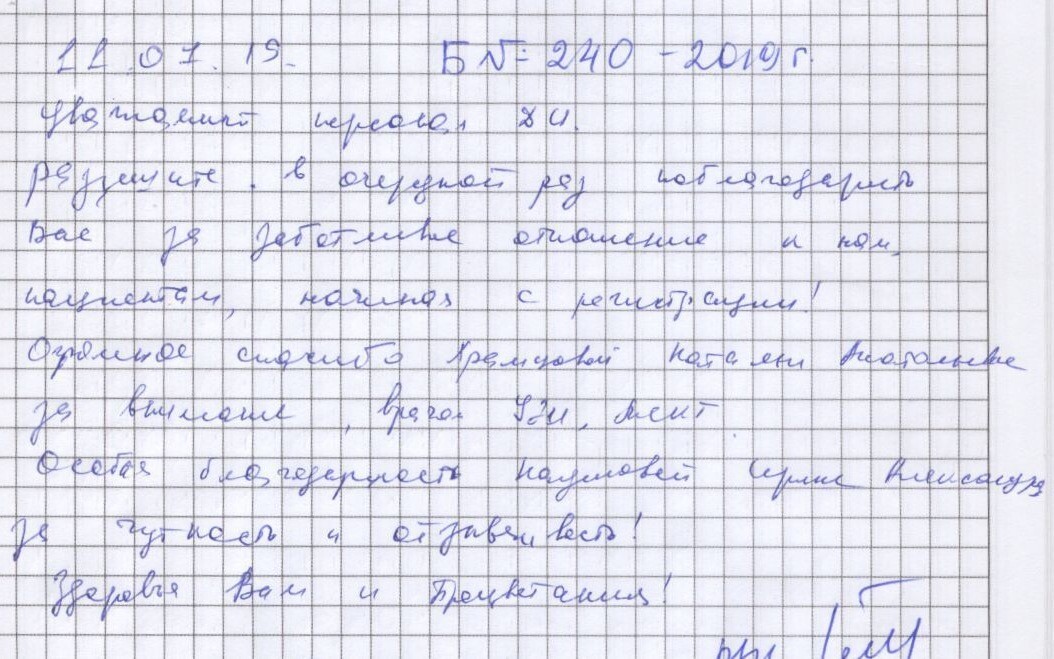 11.07.19. Б № 240 - 2019 г.
Уважаемый персонал ДЦ.
Разрешите, в очередной раз поблагодарить
Вас за заботливое отношение к нам,
пациентам, начиная с регистрации!
Огромное спасибо Храмцовой Наталии Анатольевне
за внимание, врачам УЗИ, МСКТ.
Особая благодарность Наумовой Ирине
за чуткость и отзывчивость!
Здоровья Вам и Процветания!